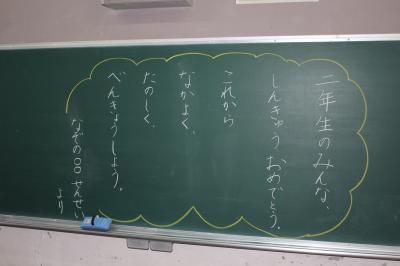 二年生のみんな、
しんきゅうおめでとう。
これから
なかよく、
たのしく、
べんきょうしよう。
なぞの○○せんせい
より